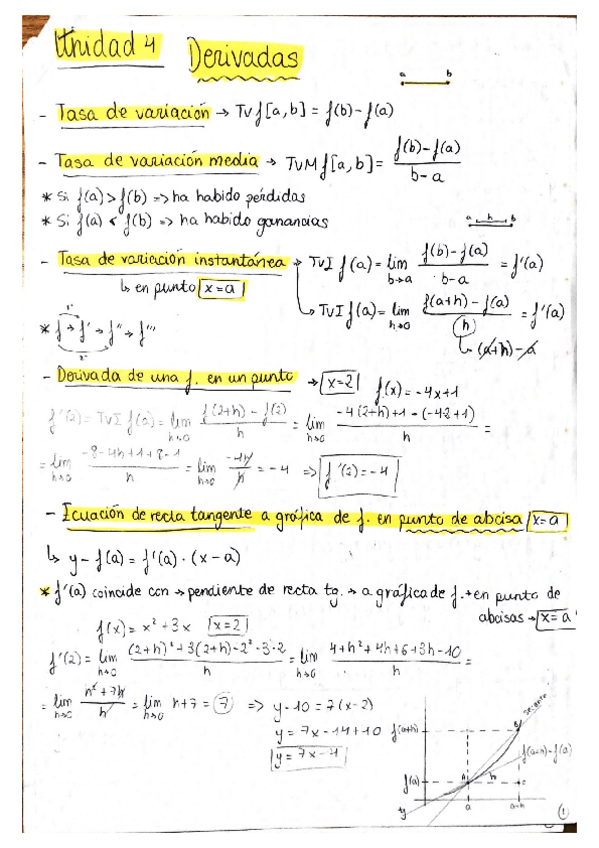 Unidad 4 Derivadas
a b
- Tasa de variación → Tv f[a,b] = f(b)-f(a)
- Tasa de variación media → TvM f[a,b] = f(b)-f(a) / b-a
* Si f(a) > f(b) => ha habido pérdidas
* Si f(a) < f(b) => ha habido ganancias
a h b
- Tasa de variación instantánea → TvI f(a) = lim b→a f(b)-f(a) / b-a = f'(a)
↳ en punto x=a
↳ TvI f(a) = lim h→0 f(a+h)-f(a) / h = f'(a)
↳ (a+h)-a
* f → f' → f'' → f'''
- Derivada de una f. en un punto → x=2 f(x) = -4x+1
f'(2) = TvI f(a) = lim h→0 f(2+h)-f(2) / h = lim h→0 -4(2+h)+1-(-4·2+1) / h =
= lim h→0 -8-4h+1+8-1 / h = lim h→0 -4h / h = -4 => f'(2) = -4
- Ecuación de recta tangente a gráfica de f. en punto de abcisa x=a
↳ y-f(a) = f'(a)·(x-a)
* f'(a) coincide con → pendiente de recta tg. → a gráfica de f. → en punto de
abcisas → x=a
f(x) = x²+3x x=2
f'(2) = lim h→0 (2+h)²+3(2+h)-2²-3·2 / h = lim h→0 4+h²+4h+6+3h-10 / h =
= lim h→0 h²+7h / h = lim h→0 h+7 = 7 => y-10 = 7(x-2)
y = 7x-14+10
y = 7x-4
secante
f(a+h)
B
f(a+h)-f(a)
f(a)
A h c
tg
a a+h
1